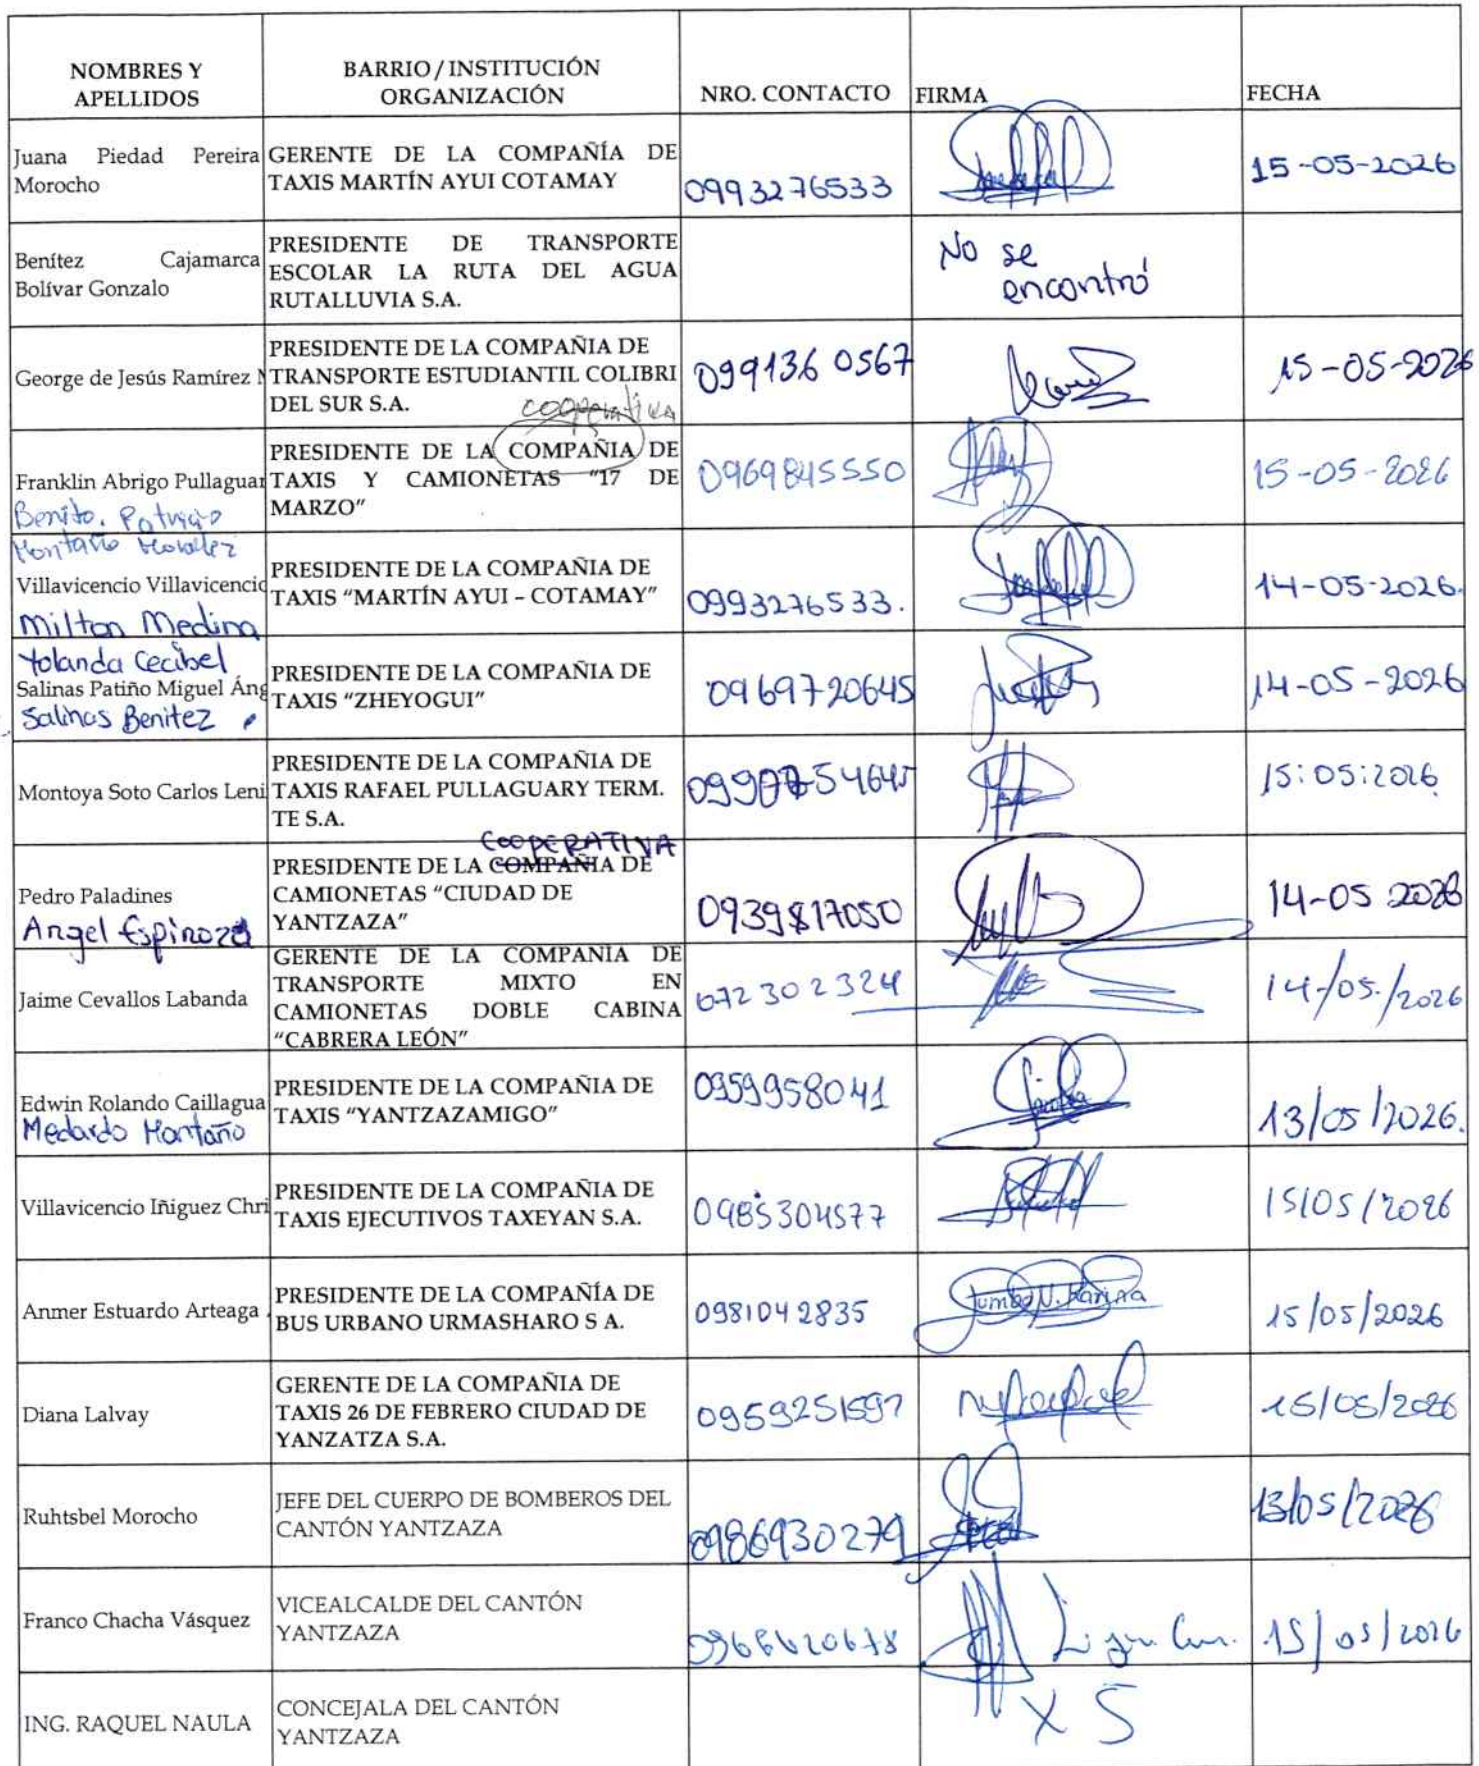 NOMBRES Y
APELLIDOS
BARRIO / INSTITUCIÓN
ORGANIZACIÓN
NRO. CONTACTO
FIRMA
FECHA
Juana Piedad Pereira
Morocho
GERENTE DE LA COMPAÑÍA DE
TAXIS MARTÍN AYUI COTAMAY
0993276533
15-05-2026
Benítez Cajamarca
Bolívar Gonzalo
PRESIDENTE DE TRANSPORTE
ESCOLAR LA RUTA DEL AGUA
RUTALLUVIA S.A.
No se
encontró
George de Jesús Ramírez
PRESIDENTE DE LA COMPAÑIA DE
TRANSPORTE ESTUDIANTIL COLIBRI
DEL SUR S.A.
099136 0567
15-05-2026
cooperativa
Franklin Abrigo Pullaguar
Benito. Patricio
Montaño Morales
PRESIDENTE DE LA COMPAÑIA DE
TAXIS Y CAMIONETAS "17 DE
MARZO"
0969845550
15-05-2026
Villavicencio Villavicencio
Milton Medina
PRESIDENTE DE LA COMPAÑIA DE
TAXIS "MARTÍN AYUI – COTAMAY"
0993276533.
14-05-2026.
Yolanda Cecibel
Salinas Patiño Miguel Áng
Salinas Benitez
PRESIDENTE DE LA COMPAÑIA DE
TAXIS "ZHEYOGUI"
0969720645
14-05-2026
Montoya Soto Carlos Leni
PRESIDENTE DE LA COMPAÑIA DE
TAXIS RAFAEL PULLAGUARY TERM.
TE S.A.
15:05:2026
COOPERATIVA
Pedro Paladines
Angel Espinoza
PRESIDENTE DE LA COMPAÑIA DE
CAMIONETAS "CIUDAD DE
YANTZAZA"
0939817050
14-05 2026
Jaime Cevallos Labanda
GERENTE DE LA COMPAÑIA DE
TRANSPORTE MIXTO EN
CAMIONETAS DOBLE CABINA
"CABRERA LEÓN"
072302324
14/05/2026
Edwin Rolando Caillagua
Medardo Montaño
PRESIDENTE DE LA COMPAÑIA DE
TAXIS "YANTZAZAMIGO"
0959958041
13/05/2026.
Villavicencio Iñiguez Chri
PRESIDENTE DE LA COMPAÑIA DE
TAXIS EJECUTIVOS TAXEYAN S.A.
0985304577
15/05/2026
Anmer Estuardo Arteaga
PRESIDENTE DE LA COMPAÑÍA DE
BUS URBANO URMASHARO S A.
0981042835
Jumbo N. Karina
15/05/2026
Diana Lalvay
GERENTE DE LA COMPAÑIA DE
TAXIS 26 DE FEBRERO CIUDAD DE
YANZATZA S.A.
0959251597
15/05/2026
Ruhtsbel Morocho
JEFE DEL CUERPO DE BOMBEROS DEL
CANTÓN YANTZAZA
0986930279
13/05/2026
Franco Chacha Vásquez
VICEALCALDE DEL CANTÓN
YANTZAZA
15/05/2026
ING. RAQUEL NAULA
CONCEJALA DEL CANTÓN
YANTZAZA
X 5